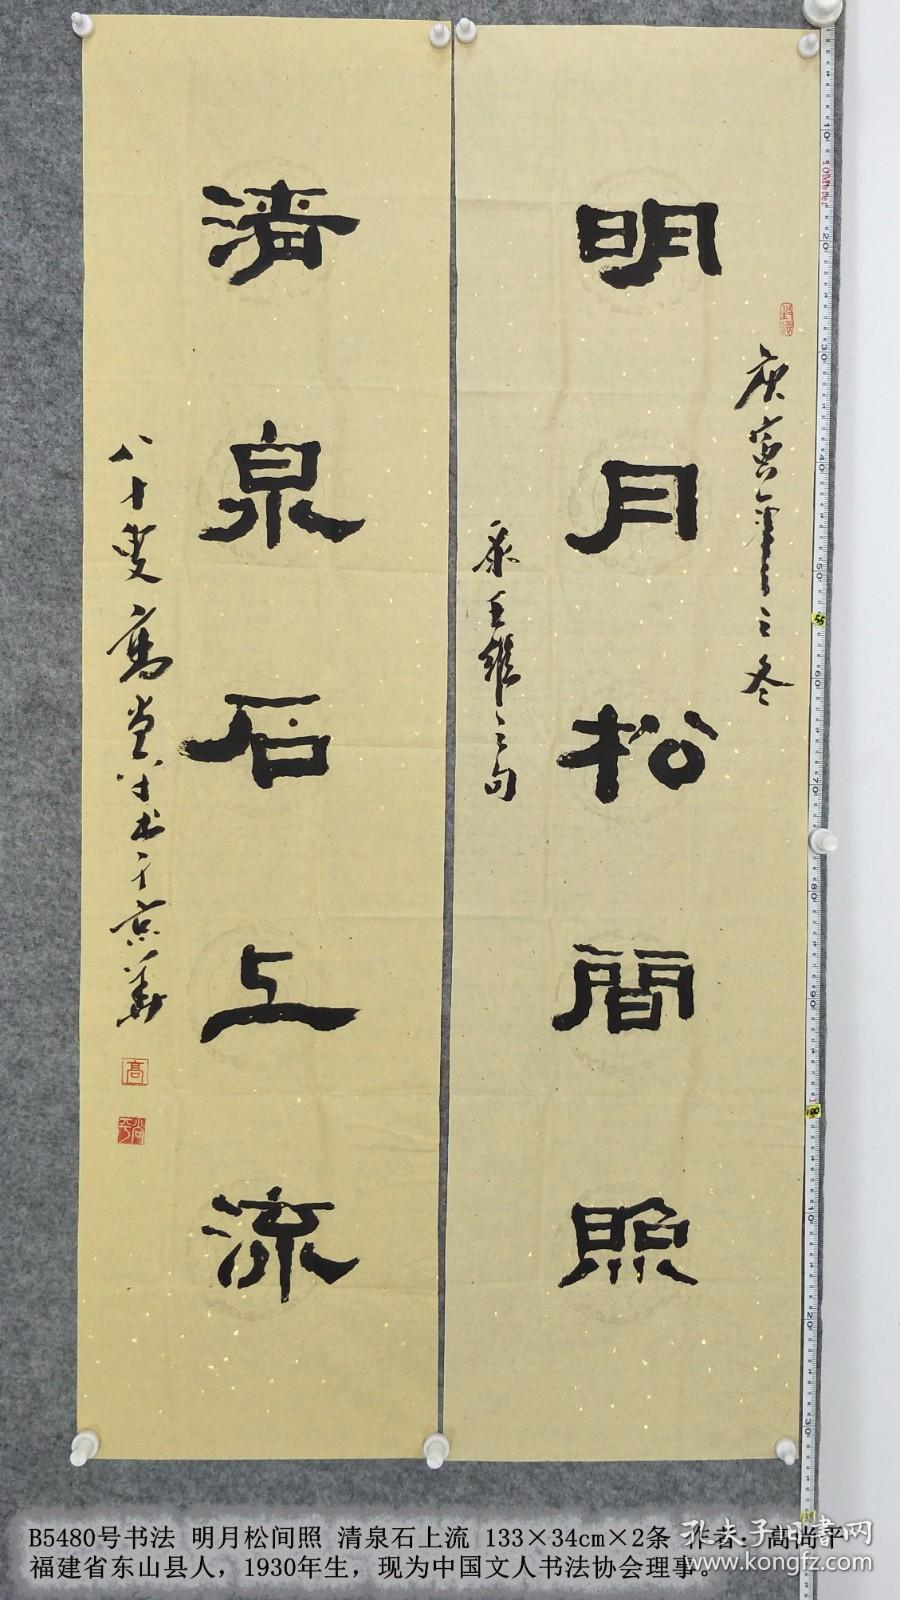 庚寅年之冬
明月松間照
录王維之句
清泉石上流
八十叟高尚平书于京華
高
尚平
B5480号书法 明月松间照 清泉石上流 133×34cm×2条 作者: 高尚平
福建省东山县人，1930年生，现为中国文人书法协会理事。
孔夫子旧书网
www.kongfz.com